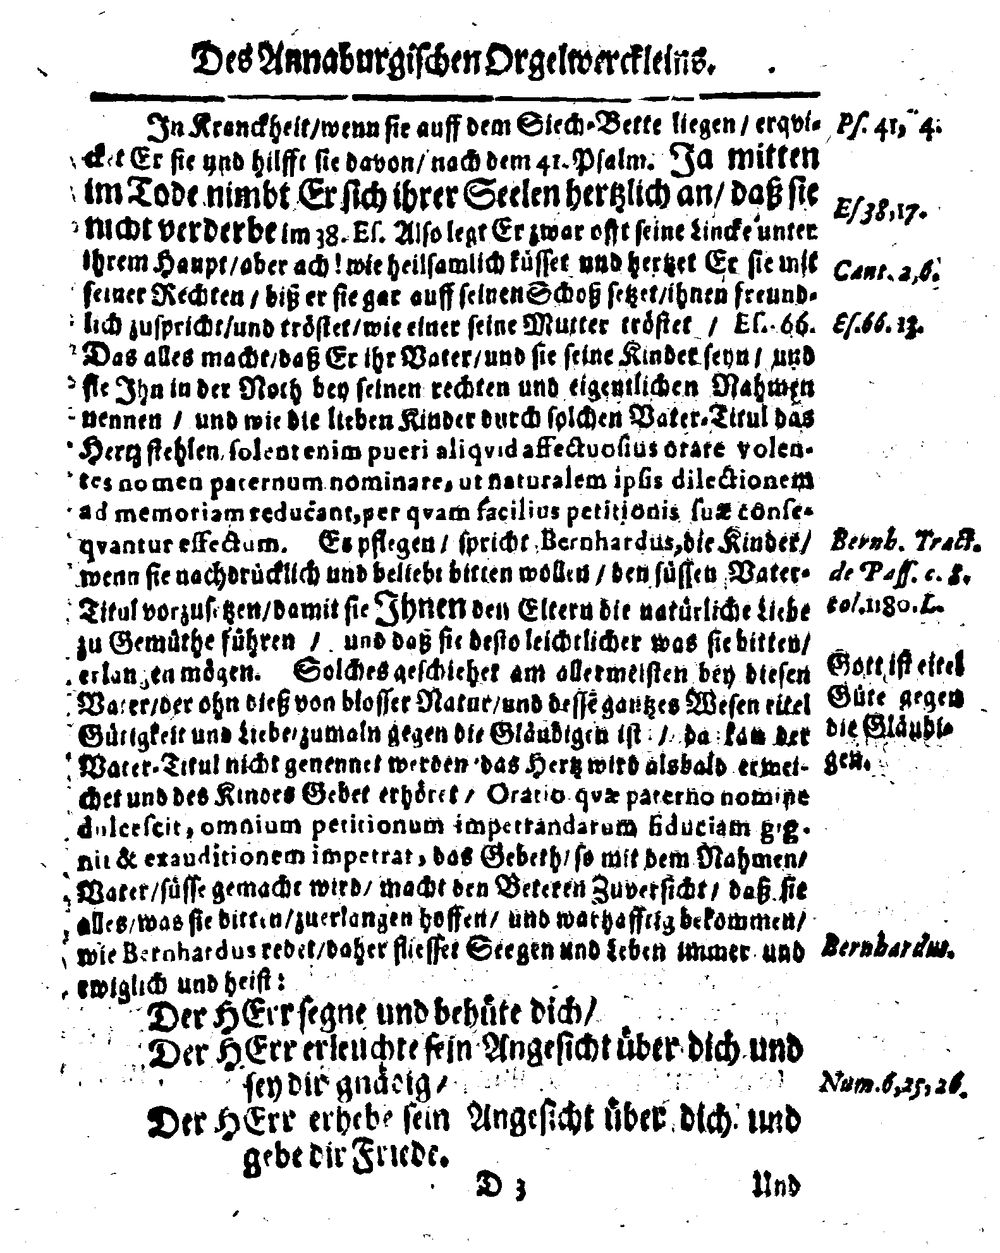 Des Annaburgischen Orgelwerckleins.
In Kranckheit/wenn sie auff dem Siech-Bette liegen/ erqvi- Ps. 41, 4.
cket Er sie und hilfft sie davon/ nach dem 41. Psalm. Ja mitten
im Tode nimbt Er sich ihrer Seelen hertzlich an/ daß sie
nicht verderbe im 38. Es. Also legt Er zwar offt seine Lincke unter Es 38,17.
ihrem Haupt/aber ach! wie heilsamlich küsset und hertzet Er sie mit Cant. 2,6.
seiner Rechten/ biß er sie gar auff seinen Schoß setzet/ihnen freund-
lich zuspricht/und tröstet/wie einer seine Mutter tröstet / Es. 66. Es.66. 13.
Das alles macht/daß Er ihr Vater/und sie seine Kinder seyn/ und
sie Ihn in der Noth bey seinen rechten und eigentlichen Nahmen
nennen / und wie die lieben Kinder durch solchen Vater-Titul das
Hertz stehlen. solent enim pueri aliqvid affectuosius orare volen-
tes nomen paternum nominare, ut naturalem ipsis dilectionem
ad memoriam reducant, per qvam facilius petitionis suæ conse-
qvantur effectum. Es pflegen/ spricht Bernhardus, die Kinder/ Bernh. Tract.
wenn sie nachdrücklich und beliebt bitten wollen/ den süssen Vater- de Pass. c. 8.
Titul vorzusetzen/damit sie Ihnen den Eltern die natürliche Liebe col. 1180. L.
zu Gemüthe führen / und daß sie desto leichtlicher was sie bitten/
erlangen mögen. Solches geschiehet am allermeisten bey diesen Gott ist eitel
Vater/der ohn dieß von blosser Natur/und dessē gantzes Wesen eitel Güte gegen
Gütigkeit und Liebe/zumaln gegen die Gläubigen ist / da kan der die Gläubi-
Vater-Titul nicht genennet werden das Hertz wird alsbald erwei- gen.
chet und des Kindes Gebet erhöret/ Oratio qvæ paterno nomine
dulcescit, omnium petitionum impetrandarum fiduciam gig-
nit & exauditionem impetrat, das Gebeth/ so mit dem Nahmen/
Vater/süsse gemacht wird/ macht den Beteren Zuversicht/ daß sie
alles/was sie bitten/zuerlangen hoffen/ und warhafftig bekommen/
wie Bernhardus redet/daher fliesset Seegen und Leben immer und Bernhardus.
ewiglich und heist:
Der HErr segne und behüte dich/
Der HErr erleuchte sein Angesicht über dich und
sey dir gnädig/ Num. 6,25,26.
Der HErr erhebe sein Angesicht über dich und
gebe dir Friede.
D 3 Und